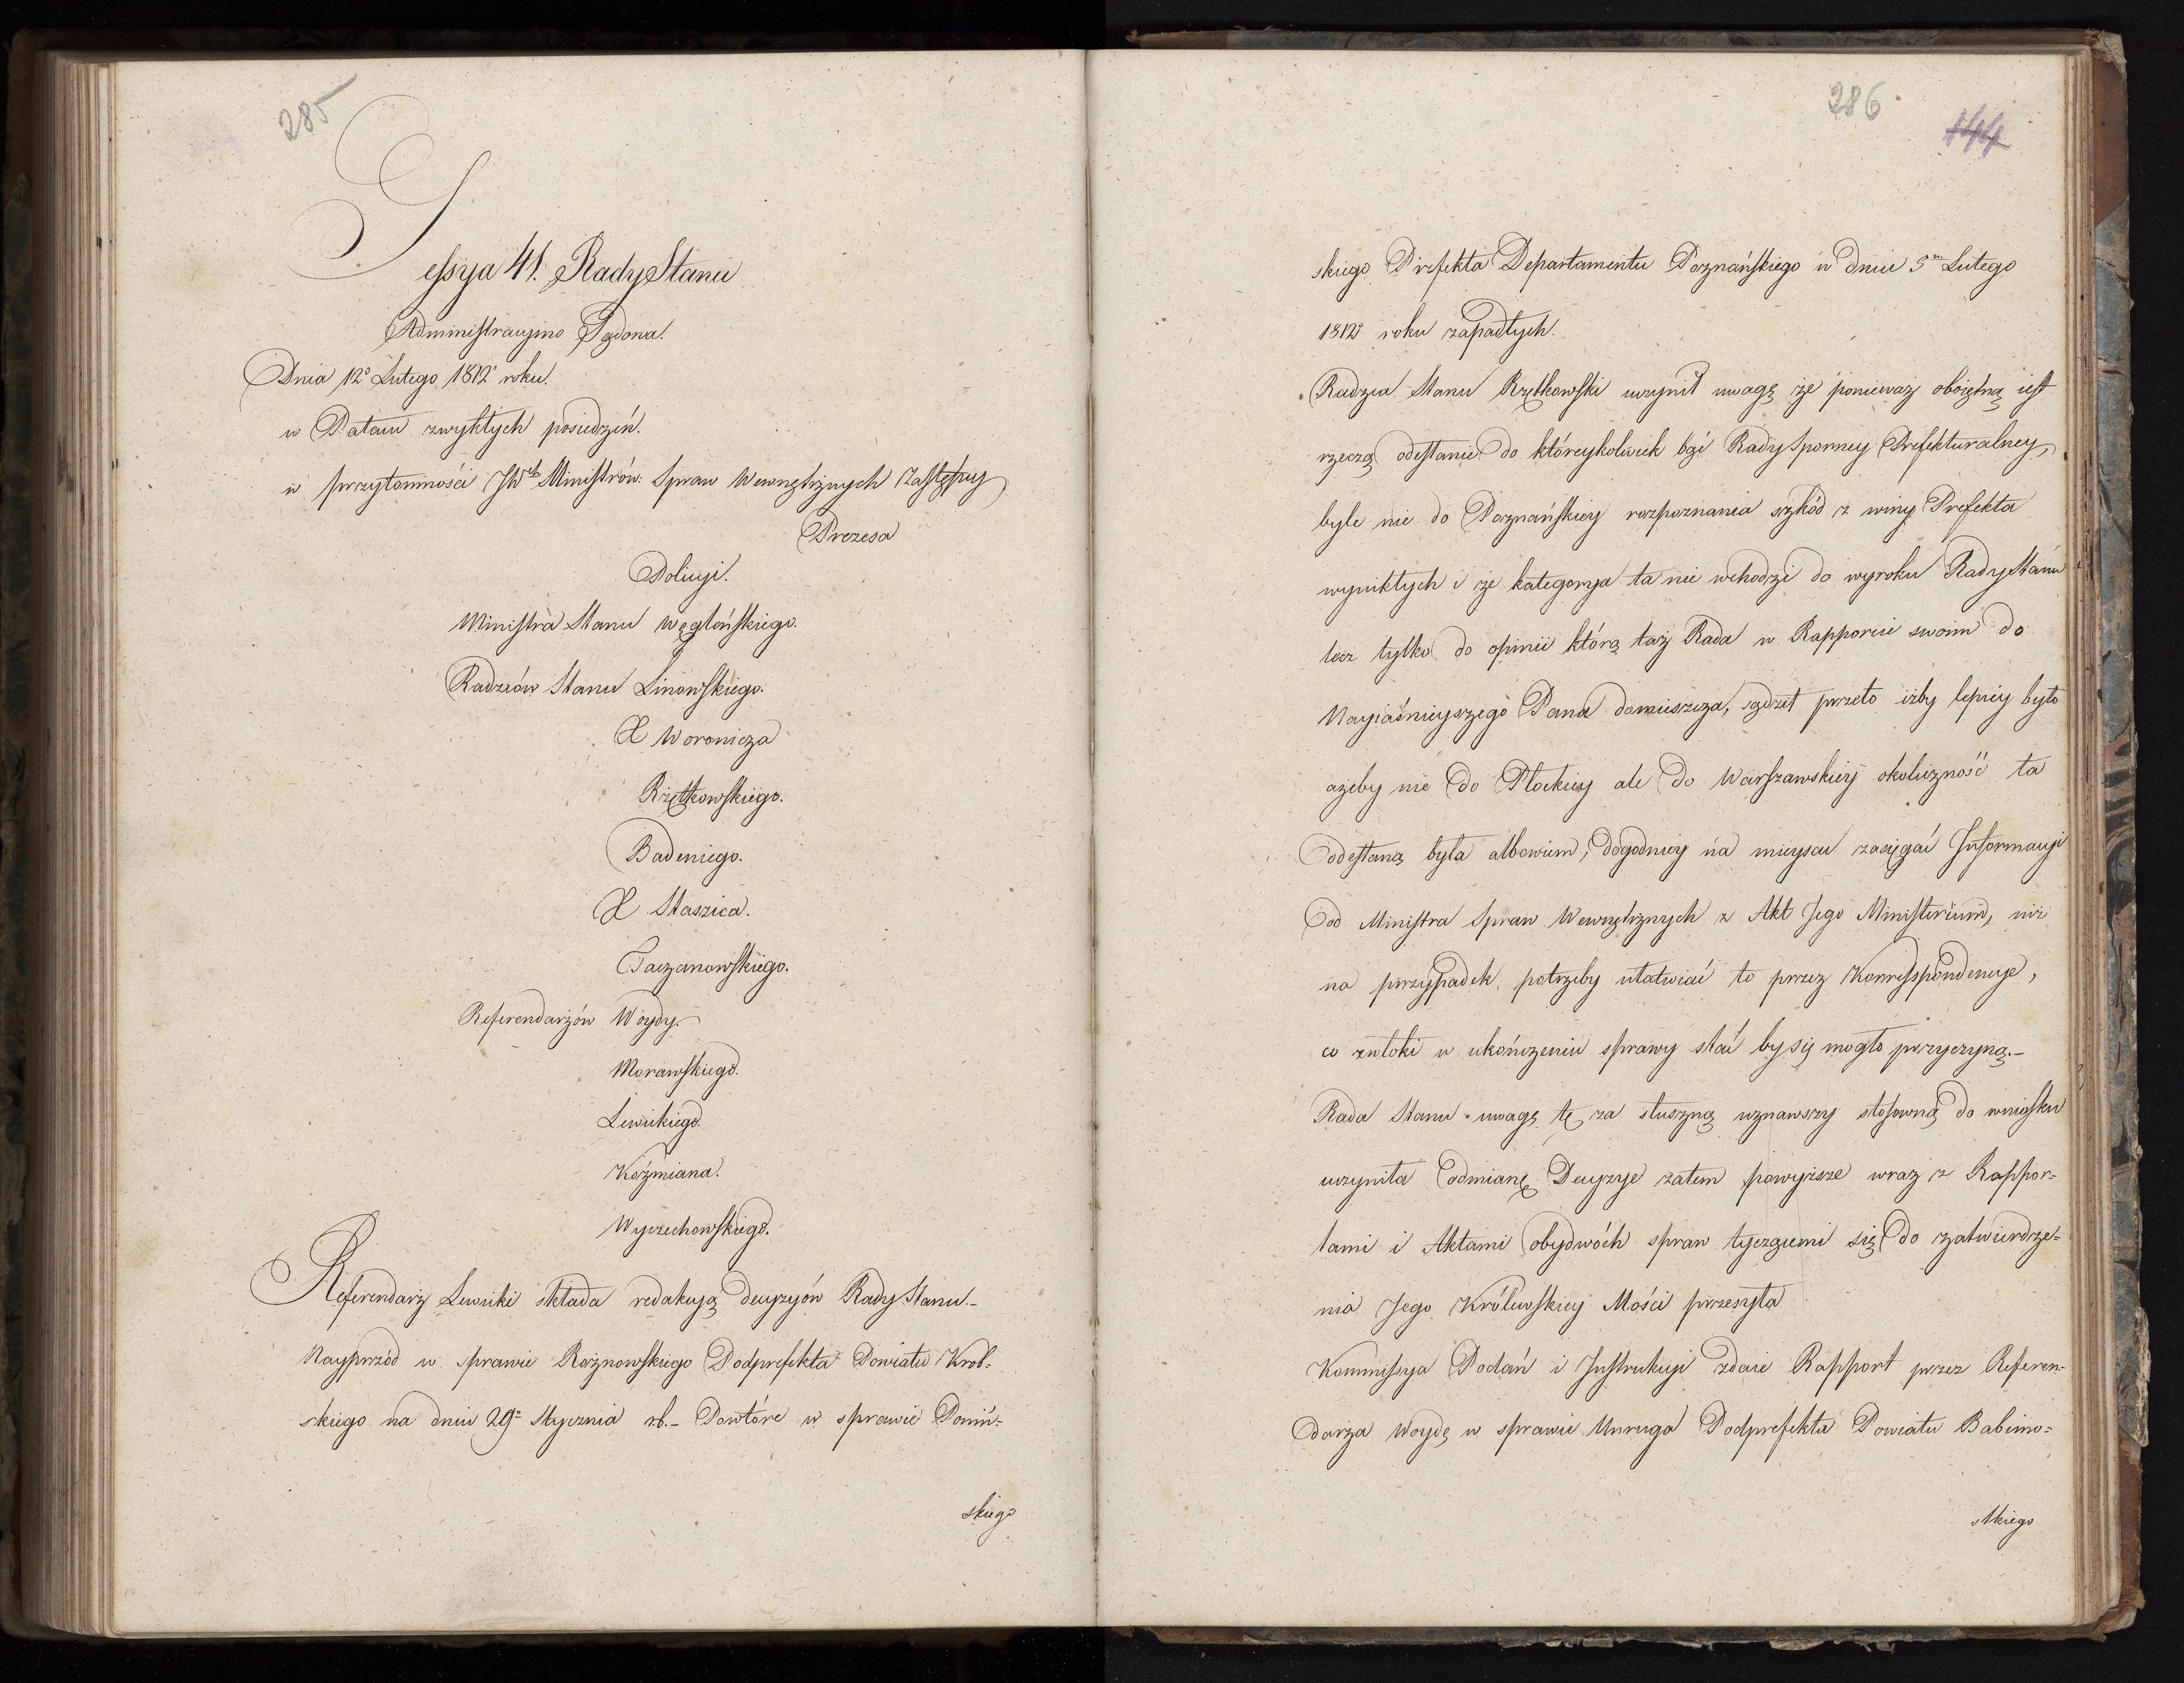 285
Sessyja 41. Rady Stanu
Administracyjno Sądowa.
Dnia 12º Lutego 1812º roku.
w Pałacu zwykłych posiedzeń.
w przytomności JWch Ministrów: Spraw Wewnętrznych Zastępcy
Prezesa
Policyi.
Ministra Stanu Węgleńskiego.
Radzców Stanu Linowskiego.
X Woronicza
Rzętkowskiego.
Badeniego.
X Staszica.
Taczanowskiego.
Referendarzów Woydy.
Morawskiego.
Lewickiego.
Koźmiana.
Wyczechowskiego.
Referendarz Lewicki składa redakcyą decyzyów Rady Stanu.-
Nayprzód w sprawie Rożnowskiego Podprefekta Powiatu Krob=
skiego na dniu 29º Stycznia rb.- Powtóre w sprawie Poniń=
skiego
286
144
skiego Prefekta Departamentu Poznańskiego w dniu 5m Lutego
1812º roku zapadłych.
Radzca Stanu Rzętkowski uczynił uwagę że ponieważ oboiętną iest
rzeczą odesłanie do któreykolwiek bąć Rady Sporney Prefekturalney,
byle nie do Poznańskiey rozpoznania szkód z winy Prefekta
wynikłych i że kategorya ta nie wchodzi do wyroku Rady Stanu
lecz tylko do opinii którą taż Rada w Rapporcie swoim do
Nayiaśnieyszego Pana domieszcza, sądził przeto iżby lepiey było
ażeby nie do Płockiey ale do Warszawskiey okoliczność ta
odesłaną była albowiem, dogodniey na mieyscu zasięgać Informacyi
od Ministra Spraw Wewnętrznych z Akt Jego Ministerium, niż
na przypadek potrzeby ułatwiać to przez Korresspondencye,
co zwłoki w ukończeniu sprawy stać by się mogło przyczyną.-
Rada Stanu uwagę tę za słuszną uznawszy stosowną do wniosku
uczyniła odmianę Decyzye zatem powyższe wraz z Rappor=
tami i Aktami obydwóch spraw tyczącemi się do zatwierdze=
nia Jego Królewskiey Mości przesyła
Kommissya Podań i Instrukcyi zdaie Rapport przez Referen=
darza Woydę w sprawie Unruga Podprefekta Powiatu Babimo=
stkiego